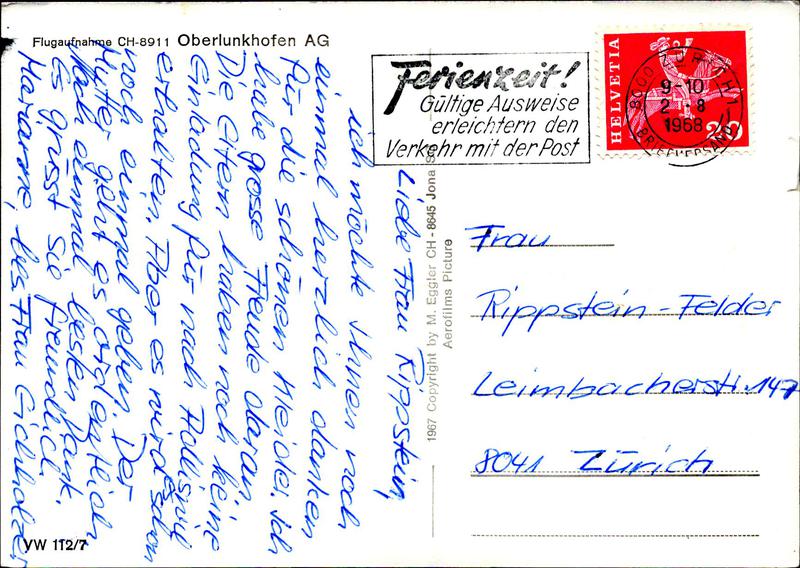 Flugaufnahme CH-8911 Oberlunkhofen AG
Ferienzeit!
Gültige Ausweise
erleichtern den
Verkehr mit der Post
HELVETIA
20
8000 ZÜRICH 1
9-10
2 - 8
1968
BRIEFVERSAND
Liebe Frau Rippstein,
ich möchte ihnen noch
einmal herzlich danken
für die schönen Kleider. Ich
habe grosse Freude daran.
Die Eltern haben noch keine
Einladung für nach
erhalten. Aber es wird schon
noch einmal gehen. Der
Mutter geht es ordentlich
Noch einmal besten Dank.
Es grüsst Sie freundlich
Marianne, bei Frau Eichholzer
1967 Copyright by M. Eggler CH - 8645 Jona SG
Aerofilms Picture
Frau
Rippstein-Felder
Leimbacherstr. 147
8041 Zürich
VW 112/7